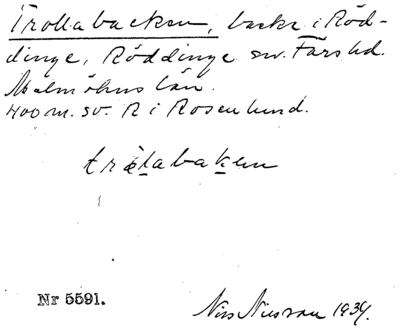 Trollabacken, backe i Röd-
dinge, Röddinge sn. Färs hd.
Malmöhus län.
400 m. sv. R i Rosenlund.
trålabaken
Nr 5591.
Nils Nilsson 1934.